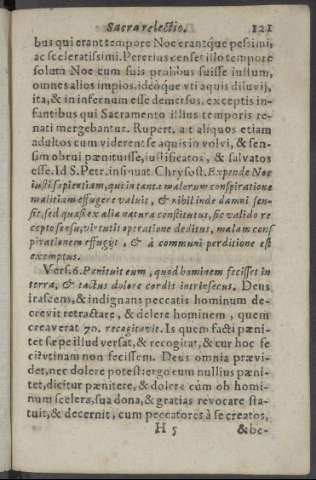 Sacra relectio. 121
bus qui erant tempore Noe erantque pessimi,
ac sceleratissimi. Pererius censet illo tempore
solum Noe cum suis prolibus fuisse iustum,
omnes alios impios, ideoque vti aquis diluvij,
ita, & in infernum esse demersos, exceptis in-
fantibus qui Sacramento illius temporis re-
nati mergebantur. Rupert. ait aliquos etiam
adultos cum viderent se aquis involvi, & sen-
sim obrui pænituisse, iustificatos, & salvatos
esse. Id S. Petr. insinuat. Chrysost. Expende Noe
iusti sapientiam, qui in tanta malorum conspiratione
malitiam effugere valuit, & nihil inde damni sen-
sit, sed quasi ex alia natura constitutus, sic valido re
cepto sensu, virtutis operatione deditus, malam cons
pirationem effugit, & à communi perditione est
exemptus.
Vers. 6. Pænituit eum, quod hominem fecisset in
terra, & tactus dolore cordis intrinsecus. Deus
irascens, & indignans peccatis hominum de-
crevit retractare, & delere hominem, quem
creaverat 70. recogitavit. Is quem facti pæni-
tet sæpe illud versat, & recogitat, & cur hoc se
cit, vtinam non fecissem. Deus omnia prævi-
det, nec dolere potest: ergo eum nullius pæni-
tet, dicitur pænitere, & dolere cùm ob homi-
num scelera, sua dona, & gratias revocare sta-
tuit, & decernit, cum peccatores à se creatos,
H 5 &be-